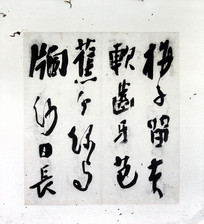 梅子留酸
軟齒牙芭
蕉分綠與
牕紗日長